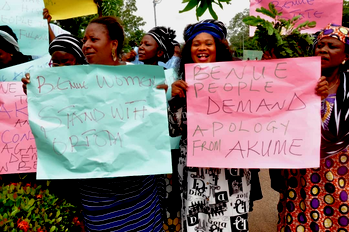 BENUE WOMEN
STAND WITH
ORTOM
BENUE
PEOPLE
DEMAND
APOLOGY
FROM AKUME